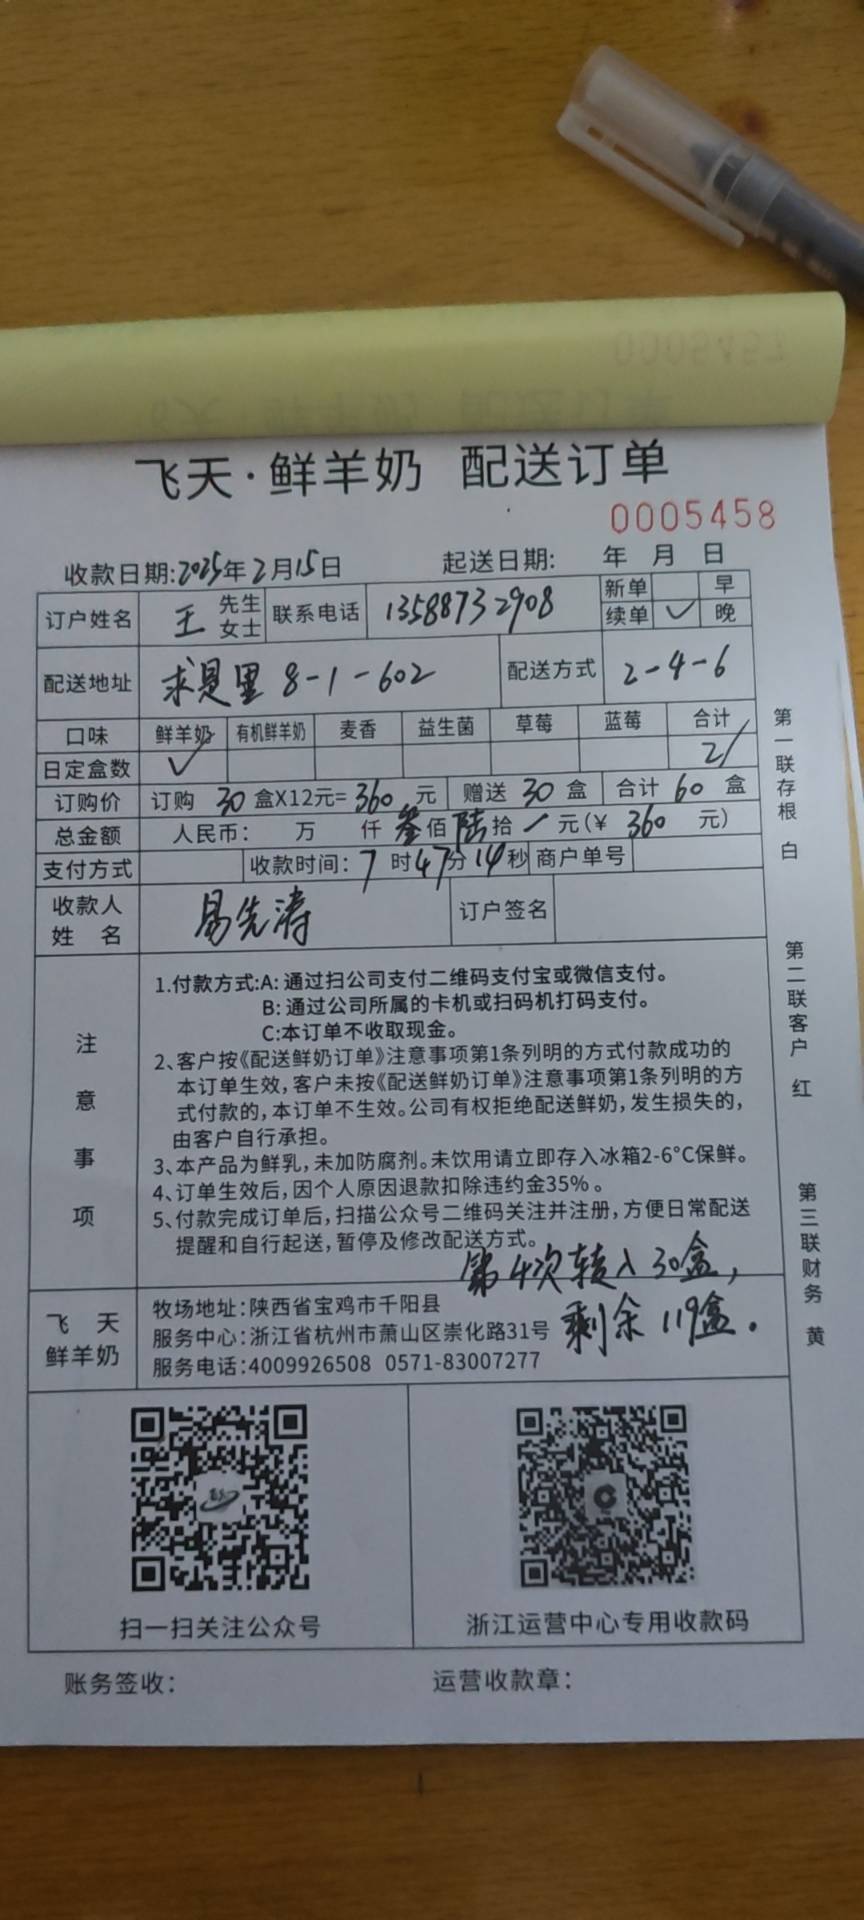 飞天·鲜羊奶 配送订单
0005458
收款日期:2025年2月15日 起送日期: 年 月 日
订户姓名 王 先生 女士 联系电话 13588732908 新单 早
续单 ✓ 晚
配送地址 求是里 8-1-602 配送方式 2-4-6
口味 鲜羊奶 有机鲜羊奶 麦香 益生菌 草莓 蓝莓 合计
日定盒数 ✓ 2/
订购价 订购 30 盒X12元= 360 元 赠送 30 盒 合计 60 盒
总金额 人民币: 万 仟 叁佰 陆拾 / 元(¥ 360 元)
支付方式 收款时间: 7 时 47 分 14 秒 商户单号
收款人姓名 易先涛 订户签名
注意事项
1.付款方式:A: 通过扫公司支付二维码支付宝或微信支付。
B: 通过公司所属的卡机或扫码机打码支付。
C:本订单不收取现金。
2、客户按《配送鲜奶订单》注意事项第1条列明的方式付款成功的
本订单生效,客户未按《配送鲜奶订单》注意事项第1条列明的方
式付款的,本订单不生效。公司有权拒绝配送鲜奶,发生损失的,
由客户自行承担。
3、本产品为鲜乳,未加防腐剂。未饮用请立即存入冰箱2-6°C保鲜。
4、订单生效后,因个人原因退款扣除违约金35%。
5、付款完成订单后,扫描公众号二维码关注并注册,方便日常配送
提醒和自行起送,暂停及修改配送方式。
第4次转入30盒,
剩余119盒.
飞天鲜羊奶
牧场地址:陕西省宝鸡市千阳县
服务中心:浙江省杭州市萧山区崇化路31号
服务电话:4009926508 0571-83007277
扫一扫关注公众号
浙江运营中心专用收款码
账务签收: 运营收款章:
第一联存根 白
第二联客户 红
第三联财务 黄